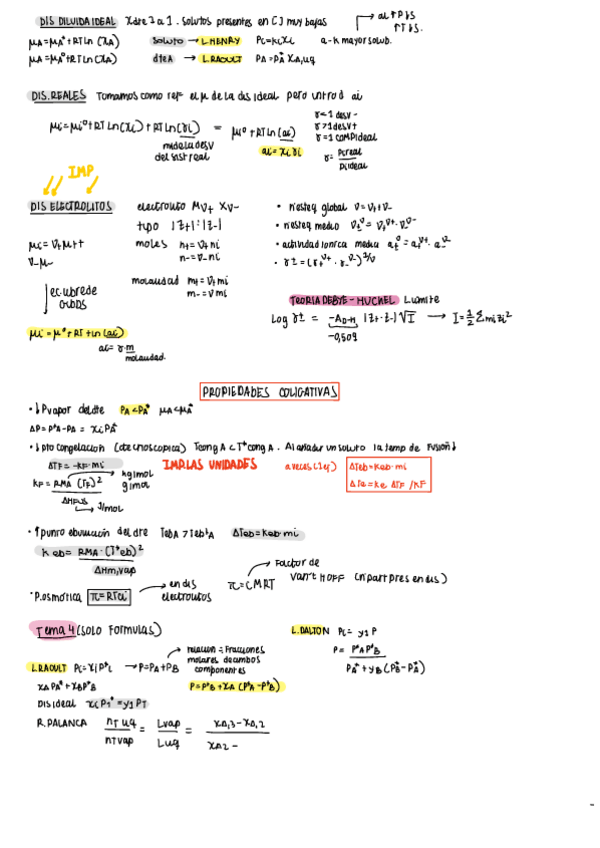 DIS DILUIDA IDEAL Xdte→a 1. Solutos presentes en [] muy bajas → al ↑P↓S
↑T↓S.
μA = μA* + RT Ln (XA) soluto → L.HENRY Pi = Ki Xi a -K mayor solub.
μA = μA* + RT Ln (XA) dte A → L.RAOULT PA = PA* XA,liq
DIS. REALES Tomamos como ref el μ de la dis ideal pero introd ai
μi = μi° + RT Ln(Xi) + RT Ln(γi) = μi° + RT Ln(ai)
mide la desv del sist real
ai = Xi γi
γ<1 desv -
γ>1 desv +
γ=1 comp ideal
γ = Pi real / Pi ideal
IMP
DIS ELECTROLITOS electrolito Mν+ Xν-
tipo |z+| : |z-|
μi = ν+ μ+ + ν- μ-
moles n+ = ν+ ni
n- = ν- ni
molalidad m+ = ν+ mi
m- = ν- mi
ec. gibbs
μi = μ° + RT Ln (ai)
ai = γ · m
molalidad.
• n°esteq global ν = ν+ + ν-
• n°esteq medio ν±^ν = ν+^ν+ · ν-^ν-
• actividad ionica media a±^ν = a+^ν+ · a-^ν-
• γ± = (γ+^ν+ · γ-^ν-)^1/ν
TEORIA DEBYE - HUCKEL Límite
Log γ± = -AD-H |z+ · z-| √I → I = 1/2 Σ mi zi²
-0,509
PROPIEDADES COLIGATIVAS
• ↓ Pvapor del dte PA < PA* μA < μA*
ΔP = P*A - PA = Xi PA*
• ↓ pto congelacion (crioscopica) Tcong A < T* cong A. Al añadir un soluto la temp de fusión ↓
ΔTF = -KF · mi
IMP. LAS UNIDADES
KF = RMA (TF)² / ΔHFUS
kg/mol
g/mol
J/mol
ΔTeb = Keb · mi
ΔTe = Ke ΔTF / KF
• ↑ punto ebullición del dte Teb A > Teb*A ΔTeb = Keb · mi
Keb = RMA · (T*eb)² / ΔHm,vap
• P. osmótica π = RTci → en dis electrolitos π = i CMRT → Factor de
VAN'T HOFF (n° part pres en dis)
Tema 4 (solo formulas)
L. RAOULT Pi = Xi P*i → P = PA + PB
relacion ÷ fracciones
molares de ambos
componentes
XA PA* + XB P*B
P = P*B + XA (P*A - P*B)
Dis ideal Xi Pi* = yi PT
R. PALANCA nT liq / nT vap = Lvap / Lliq = XA,3 - XA,2 / XA2 -
L. DALTON Pi = yi P
P = P*A P*B / PA* + yB (PB* - PA*)